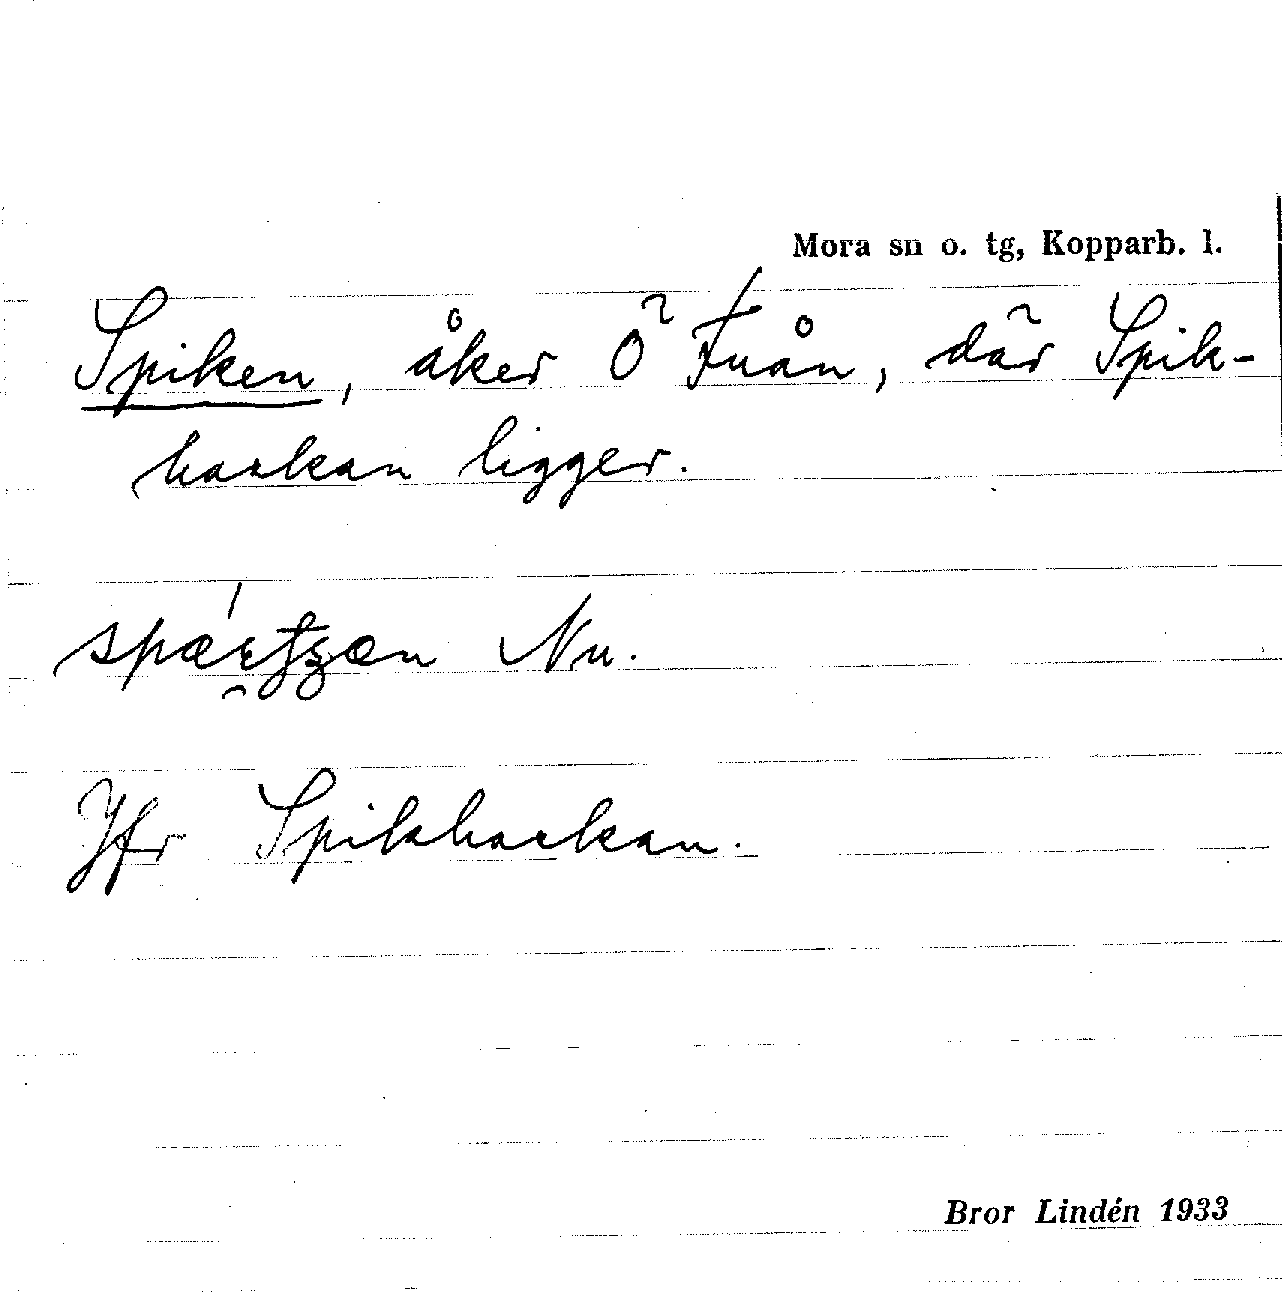 Mora sn o. tg, Kopparb. l.
Spiken, åker Ö Fuån, där Spik-
harkan ligger.
Nu.
Jfr Spikharkan.
Bror Lindén 1933